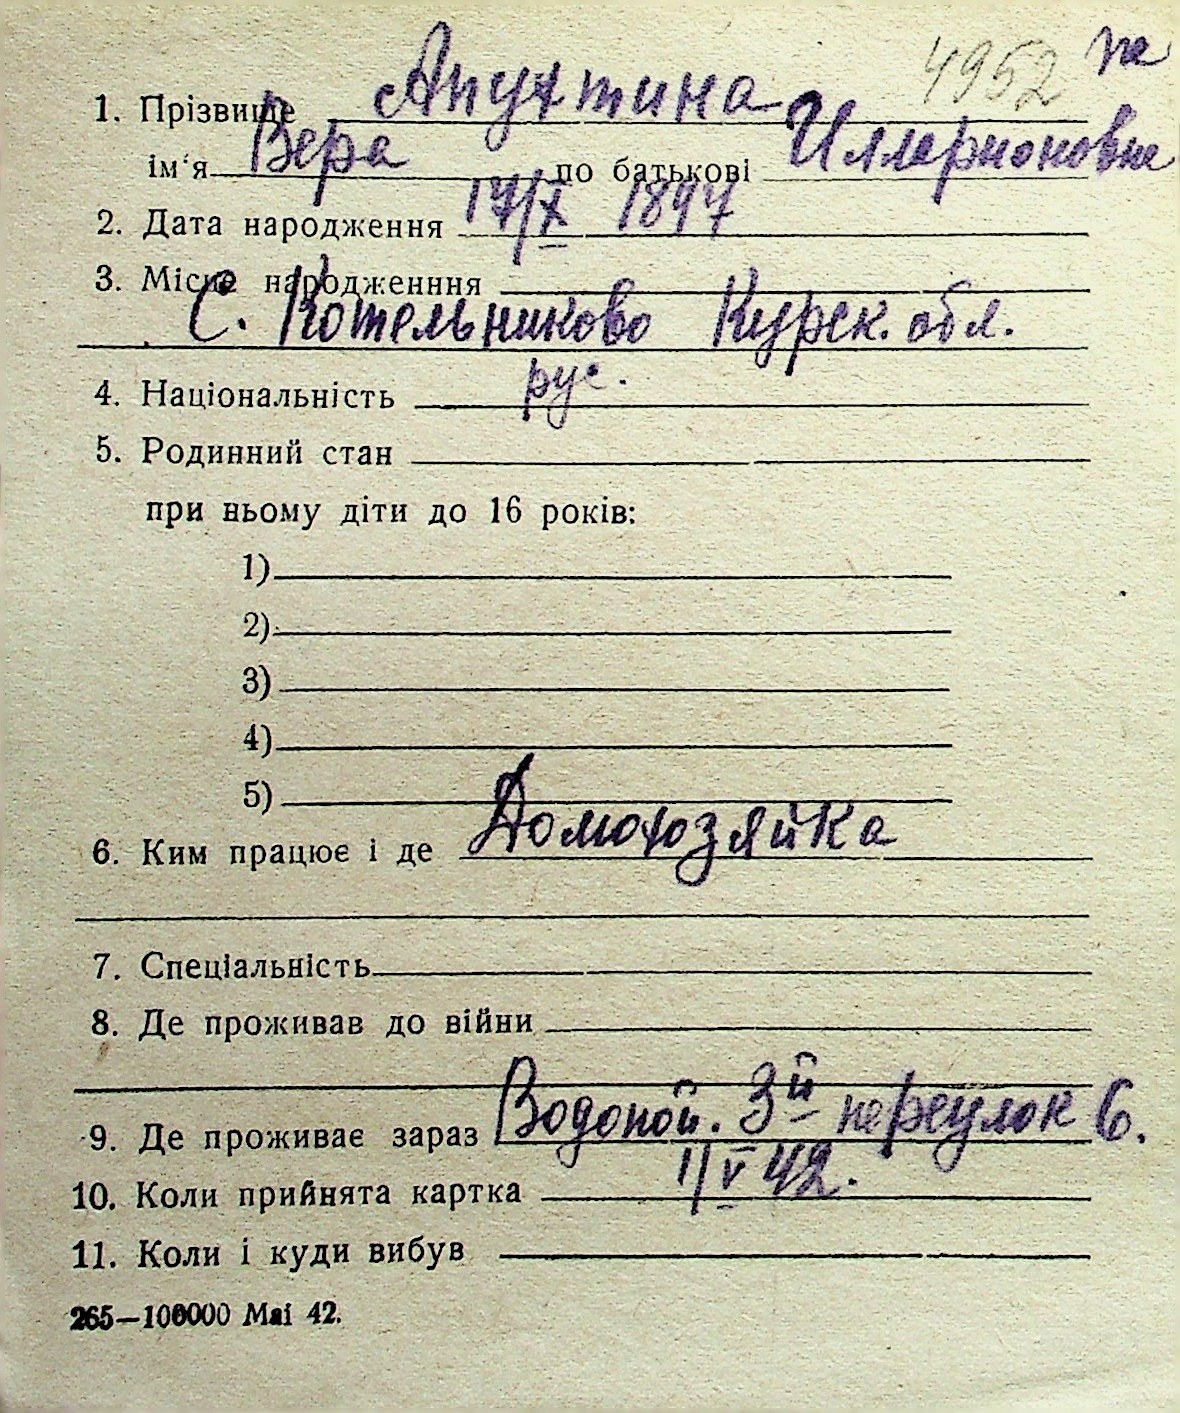 4952 на
1. Прізвище Апухтина
ім'я Вера по батькові Илларионовна
2. Дата народження 17/X 1897
3. Місце народженння
С. Котельниково Курск. обл.
4. Національність рус.
5. Родинний стан
при ньому діти до 16 років:
1)
2)
3)
4)
5)
6. Ким працює і де Домохозяйка
7. Спеціальність
8. Де проживав до війни
9. Де проживає зараз Водопой. 3й переулок 6.
10. Коли прийнята картка 1/V 42.
11. Коли і куди вибув
265—100000 Маі 42.